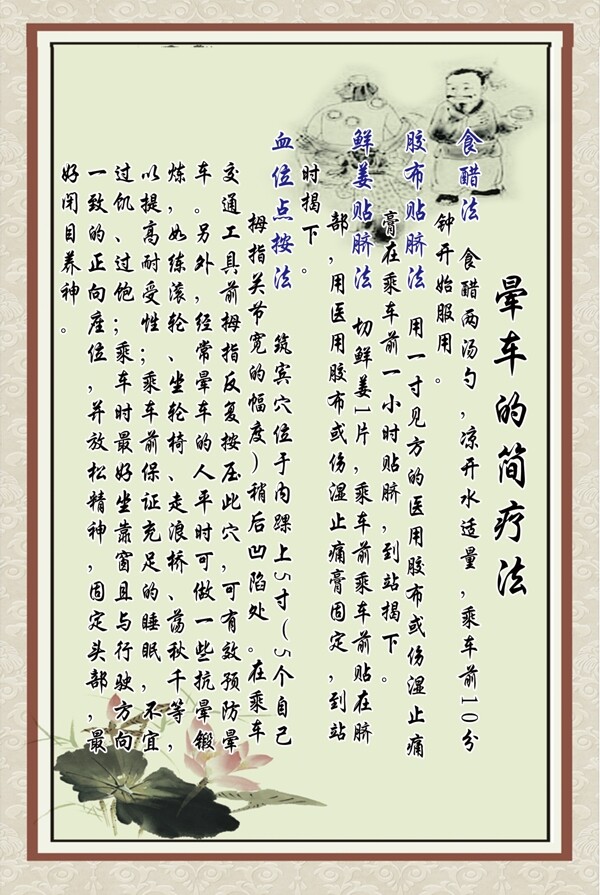 晕车的简疗法
食醋法 食醋两汤勺，凉开水适量，乘车前10分
钟开始服用。
胶布贴脐法 用一寸见方的医用胶布或伤湿止痛
膏在乘车前一小时贴脐，到站揭下。
鲜姜贴脐法 切鲜姜1片，乘车前乘车前贴在脐
部，用医用胶布或伤湿止痛膏固定，到站
时揭下。
血位点按法 筑宾穴位于内踝上5寸（5个自己
拇指关节宽的幅度）稍后凹陷处。在乘车
交通工具前拇指反复按压此穴，可有效预防晕
车。另外，经常晕车的人平时可做一些抗晕锻
炼，如练滚轮、坐轮椅、走浪桥、荡秋千等，
以提高耐受性；乘车前保证充足的睡眠，不宜
过饥、过饱；乘车时最好坐靠窗且与行驶方向
一致的正向座位，并放松精神，固定头部，最
好闭目养神。